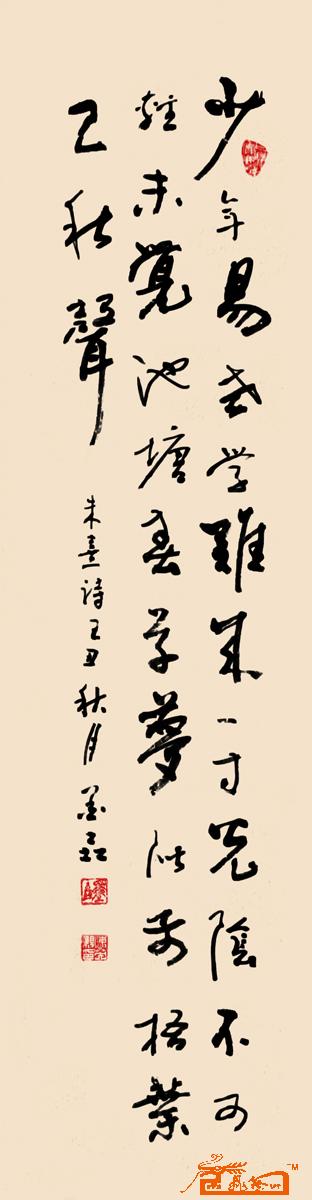 少年易老学難成一寸光陰不可
軽未覚池塘春草夢階前梧葉
已秋聲
朱熹詩 丑秋月